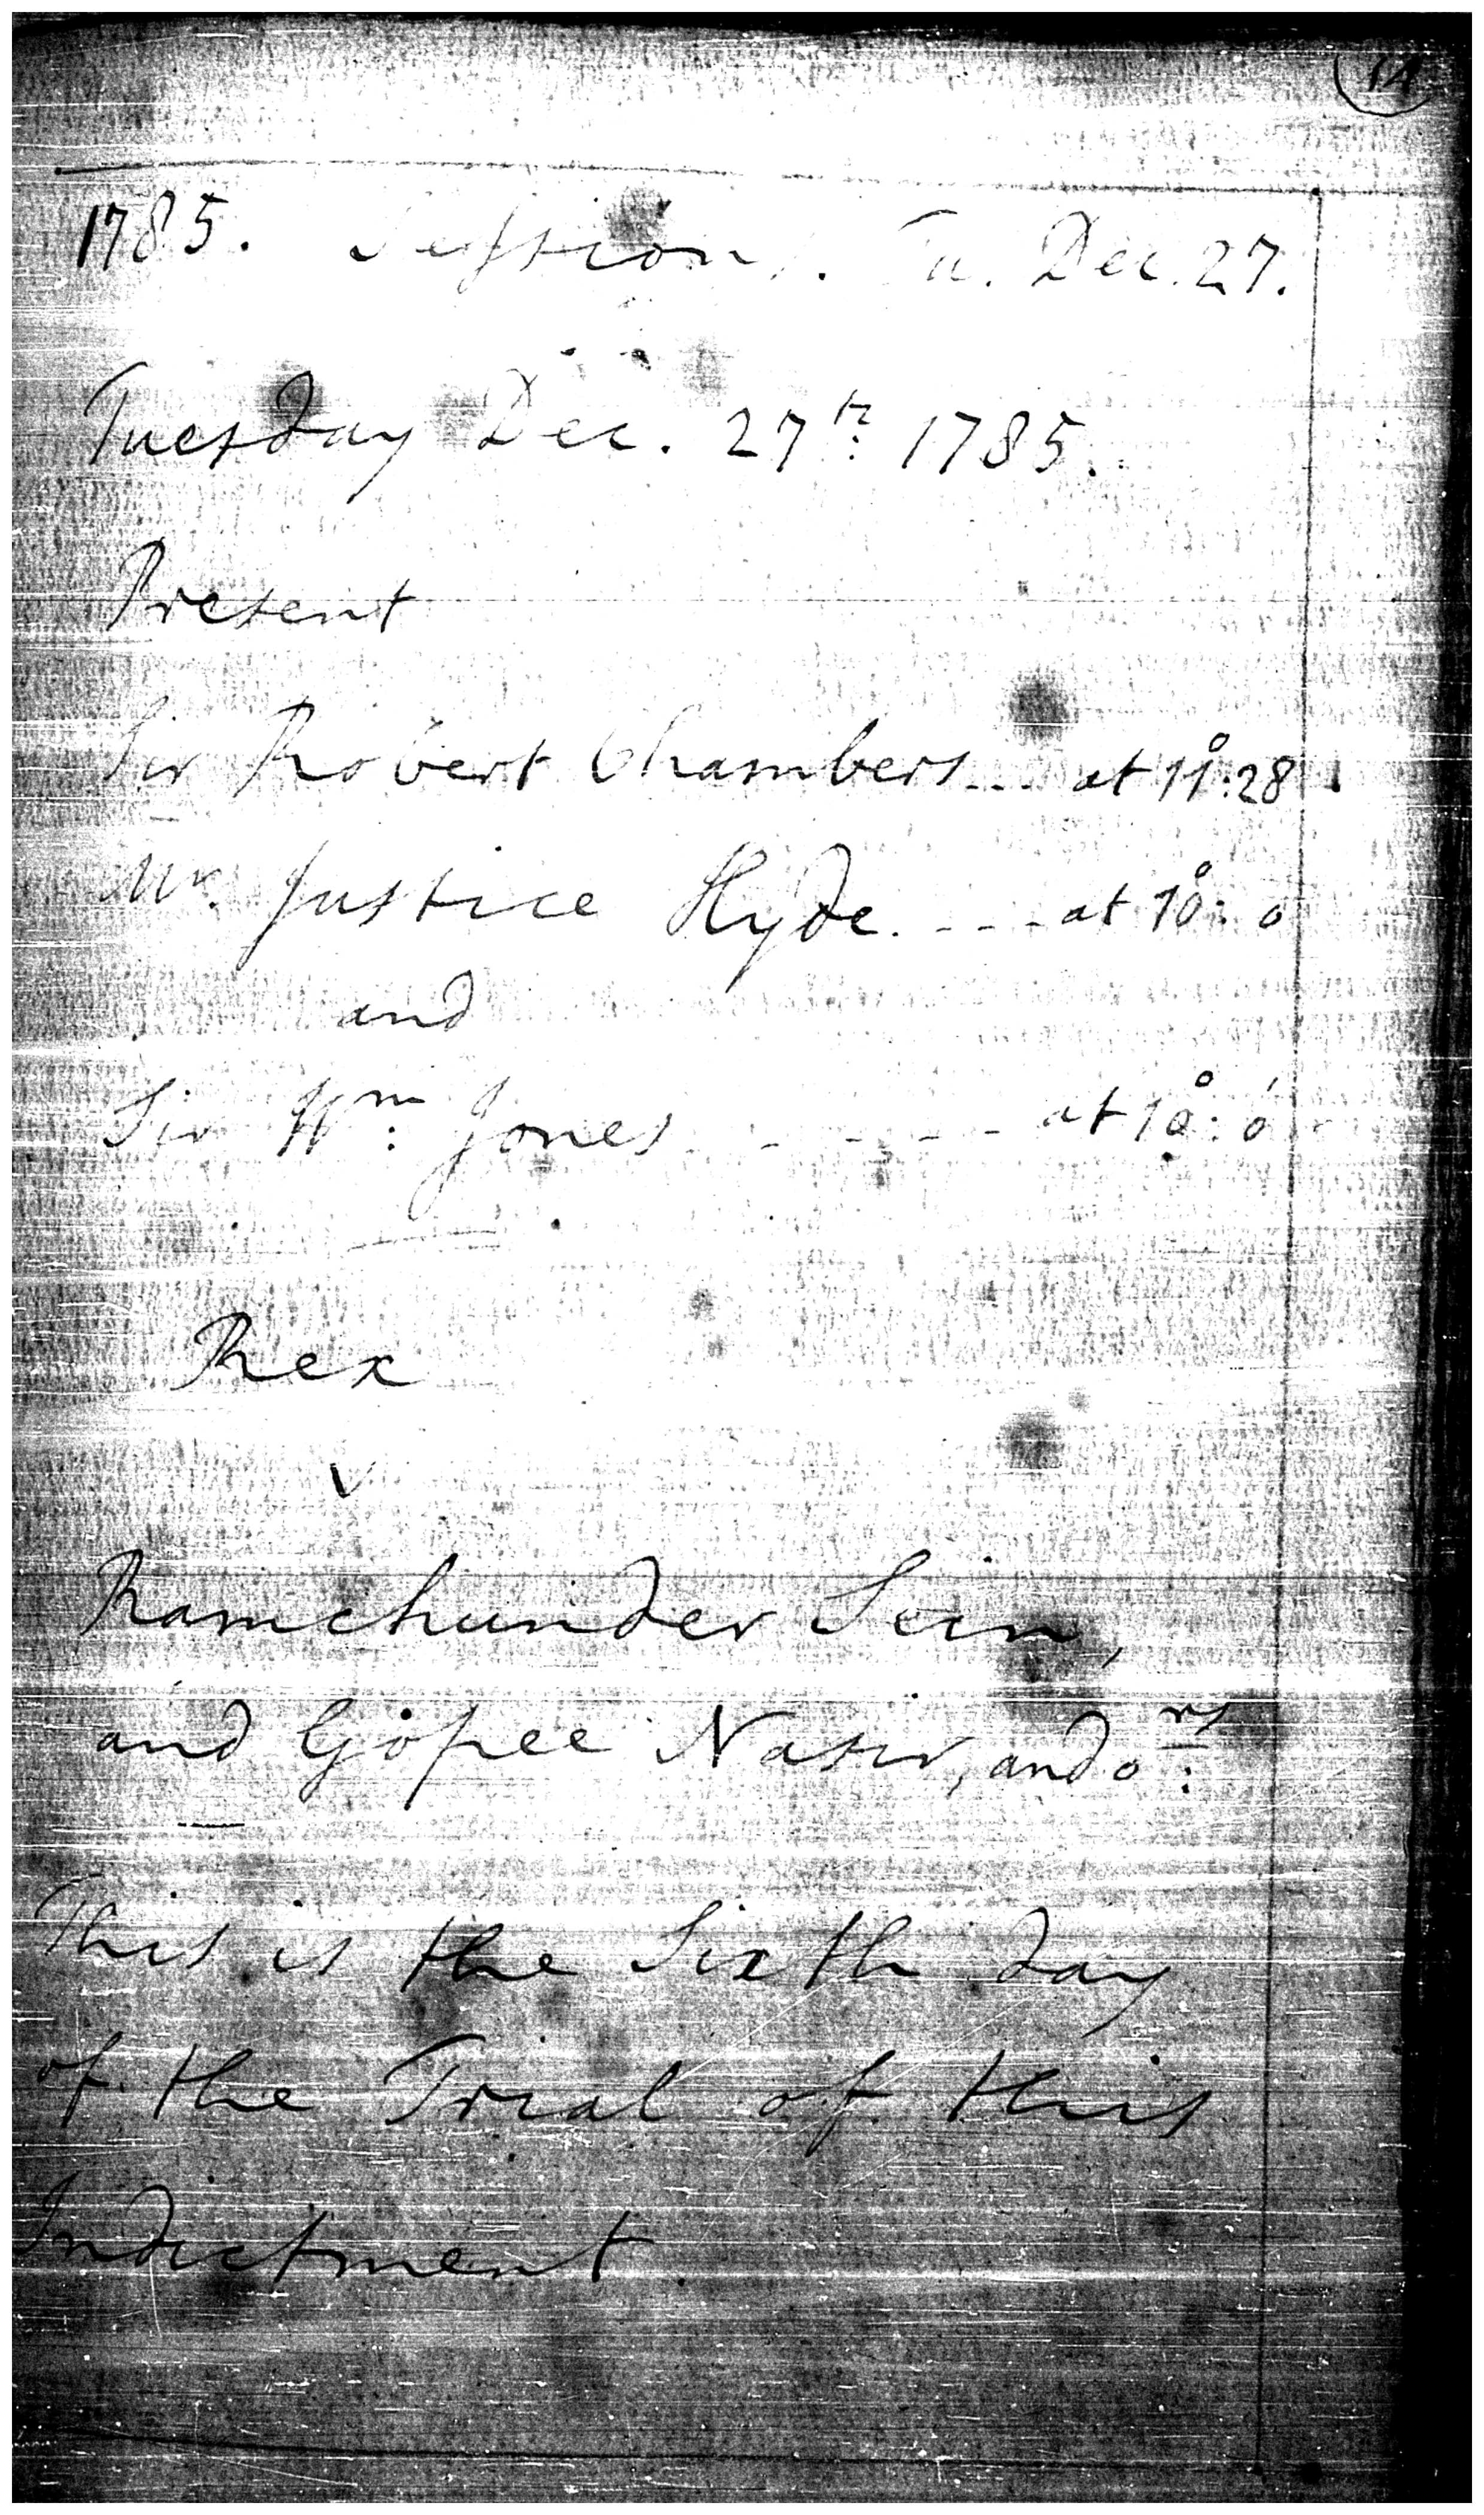 1785. Sessions. Tu. Dec. 27.
Tuesday Dec. 27th: 1785.
Present
Sir Robert Chambers... at 11°:28
Mr. Justice Hyde. - - - at 10°: 0
and
Sir Wm: Jones - - - - - at 10°: 0'
Rex
v
Ramchunder Sein,
and Gopee Nasir, and o:rs
This is the Sixth day
of the Trial of this
Indictment.